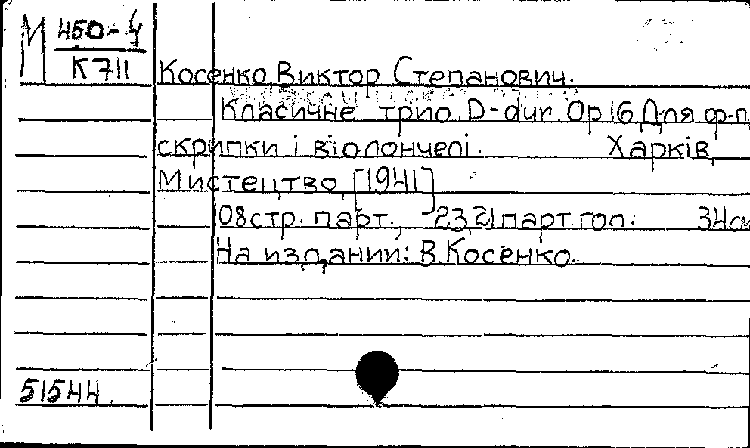 М 450-4
К711
Косенко Виктор Степанович.
Класичне трио D-dur. Op 16 Для ф-п,
скрипки і віолончелі. Харків,
Мистецтво, [1941]
08стр. парт., 23,21 парт.гол. 34см
На издании: В.Косенко.
51544.